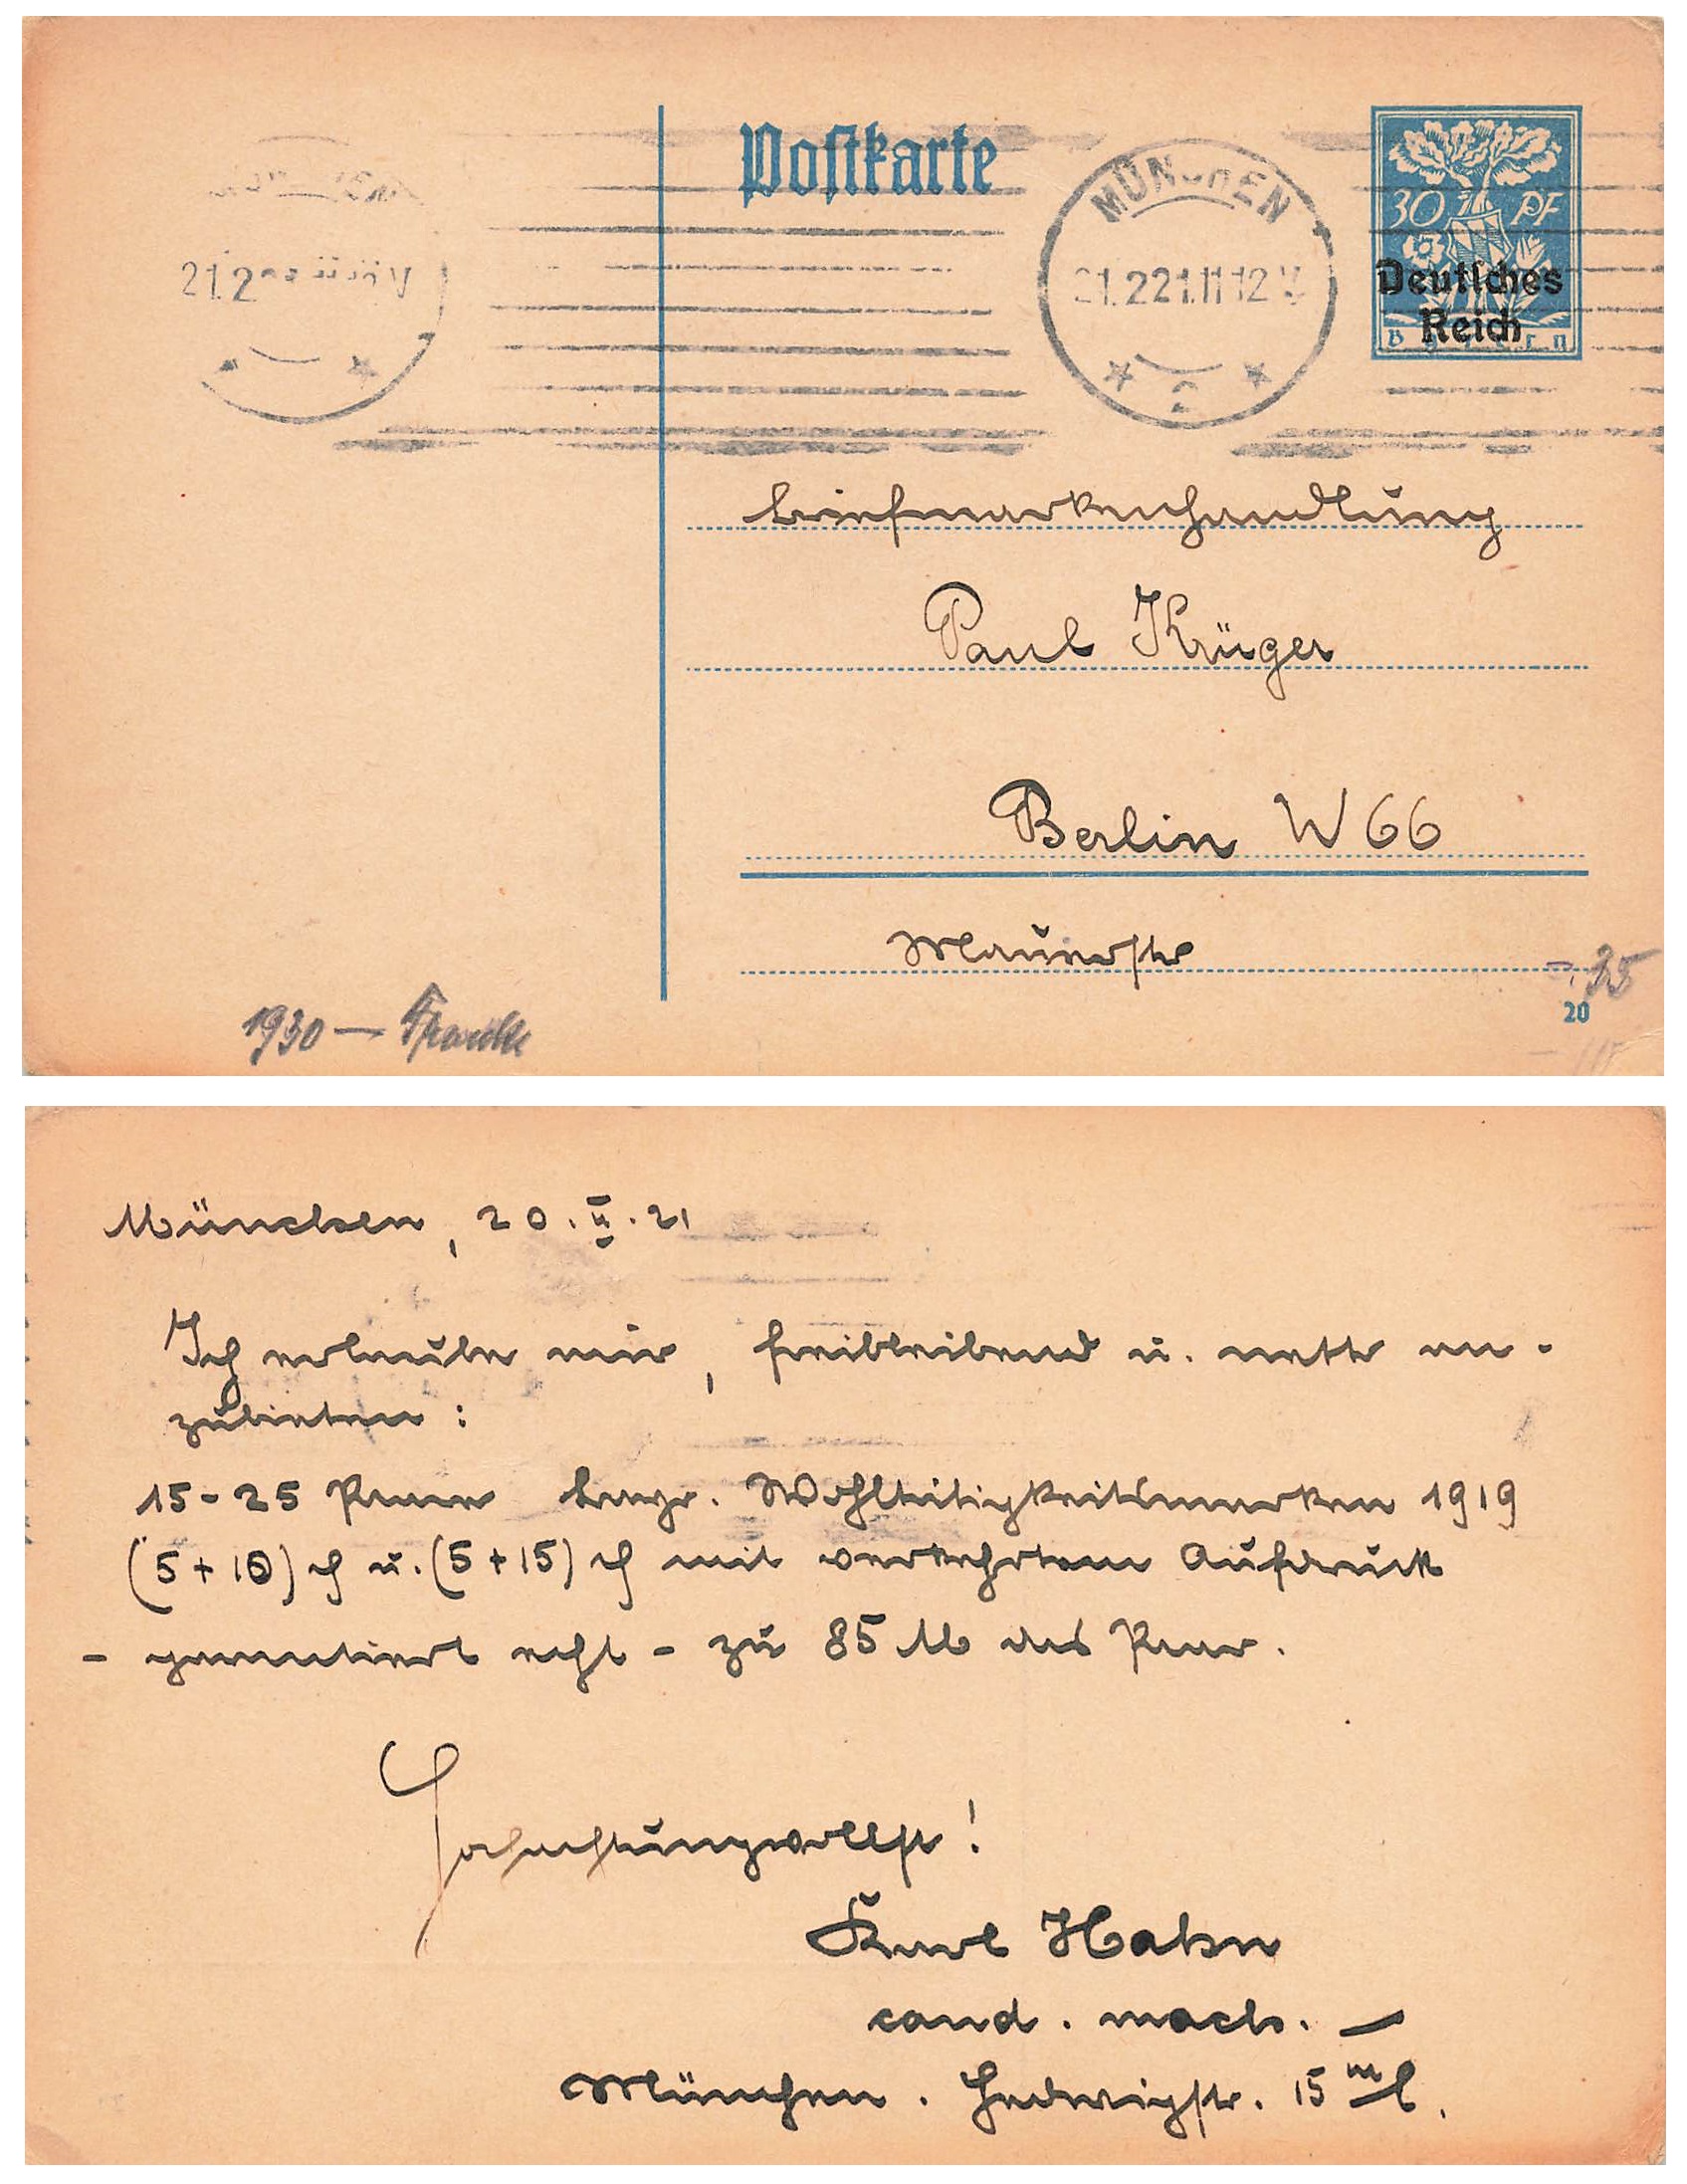 Postkarte
MÜNCHEN
21.2.21.11-12 V
2
30 PF
Deutsches
Reich
Bayern
Briefmarkenhandlung
Paul Krüger
Berlin W 66
Mauerstr
-.35
20
1930 —
München, 20. II. 21
Ich erlaube mir, freibleibend u. netto an-
zubieten:
15-25 Paare bayr. Wohltätigkeitsmarken 1919
(5+10) ₰ u. (5+15) ₰ mit verkehrtem Aufdruck
- garantiert echt - zu 85 M das Paar.
Hochachtungsvollst!
Karl Hahn
cand. mach. —
München. Hedwigstr. 15 III l.